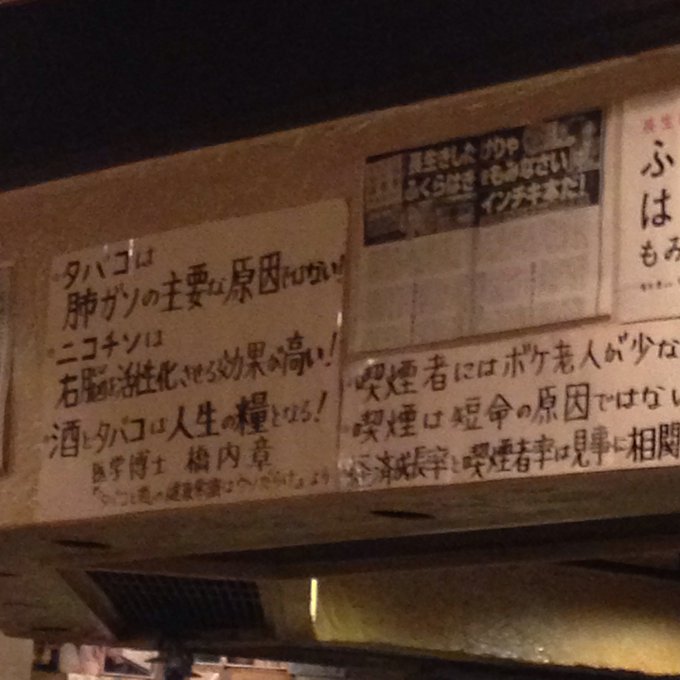 ・タバコは
肺ガンの主要な原因ではない!
・ニコチンは
右脳を活性化させる効果が高い!
・酒とタバコは人生の糧となる!
医学博士 橋内章
長生きしたけりゃ
ふくらはぎをもみなさい
インチキ本だ!
・喫煙者にはボケ老人が少な
・喫煙は短命の原因ではない
経済成長率と喫煙者率は見事に相関
長生
ふ
は
もみ